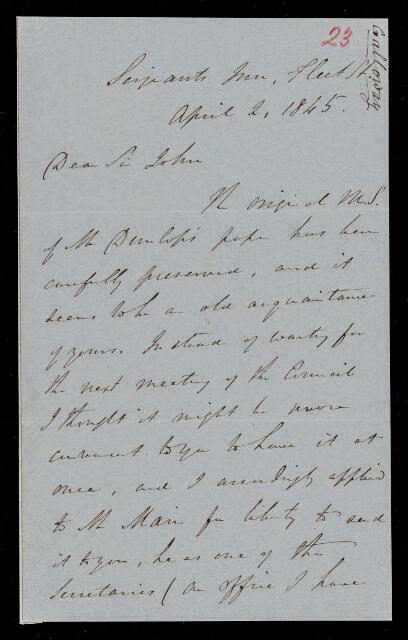 23
Galloway
Serjeants Inn, Fleet St.
April 2, 1845.
Dear Sir John
The original M.S.
of Mr Dunlop's paper has been
carefully preserved, and it
seems to be an old acquaintance
of yours. Instead of waiting for
the next meeting of the Council
I thought it might be more
convenient to you to have it at
once, and I accordingly applied
to Mr Main for liberty to send
it to you, he as one of the
Secretaries (an office I have